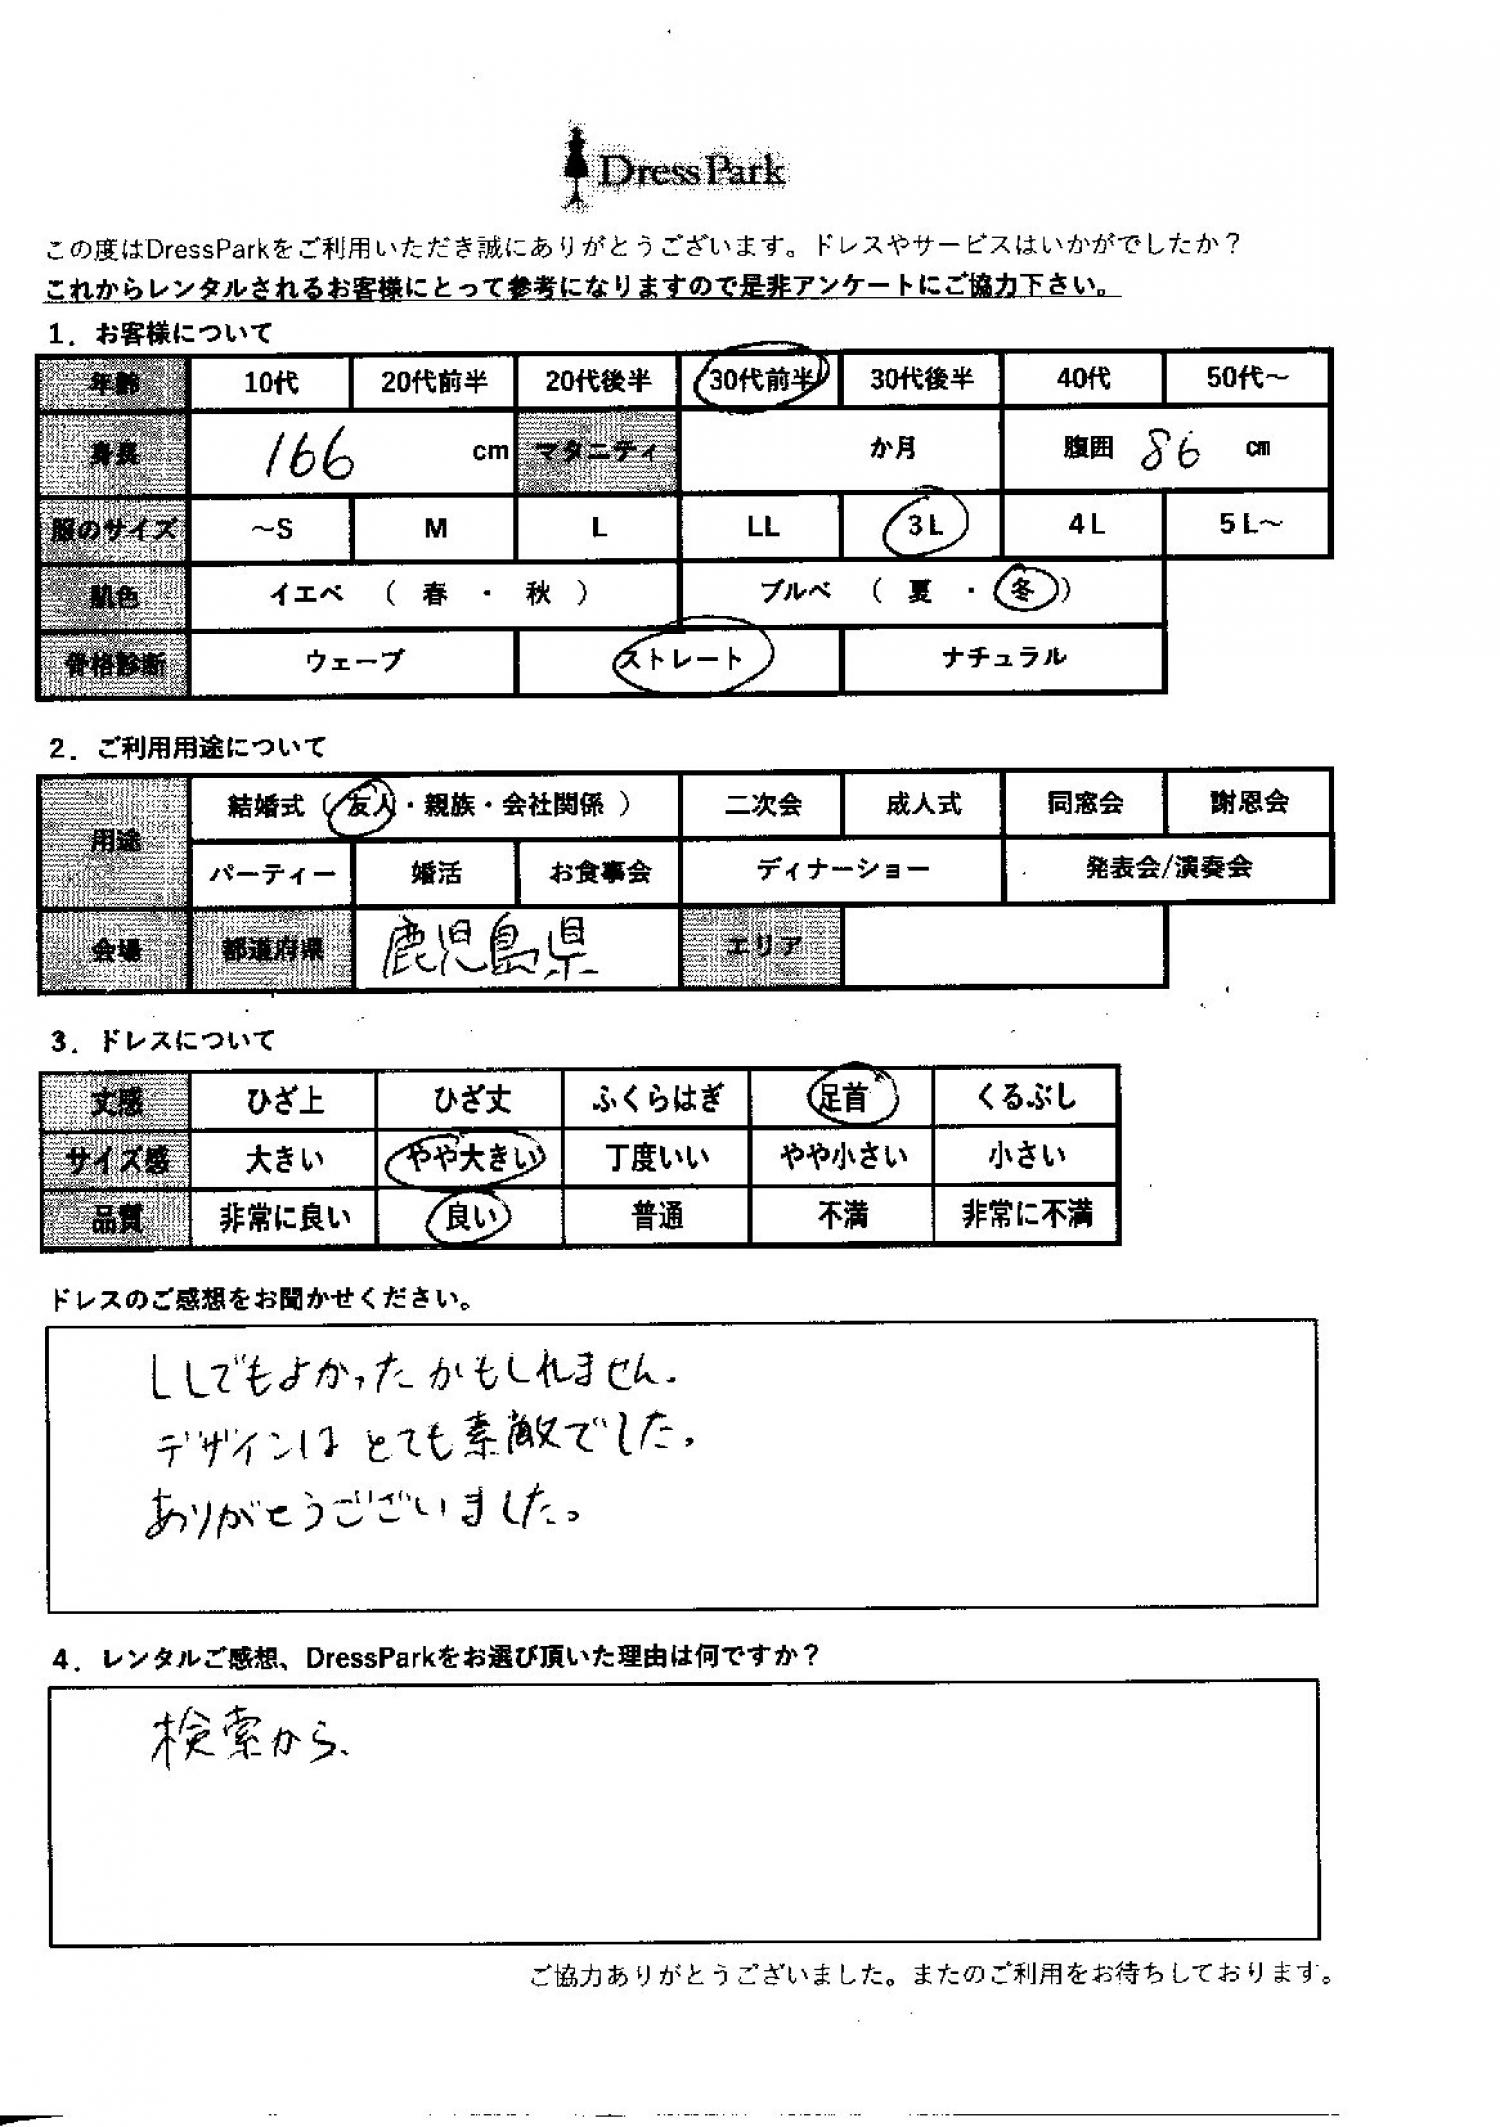 DressPark
この度はDressParkをご利用いただき誠にありがとうございます。ドレスやサービスはいかがでしたか？
これからレンタルされるお客様にとって参考になりますので是非アンケートにご協力下さい。
1．お客様について
年齢 10代 20代前半 20代後半 30代前半 30代後半 40代 50代～
身長 166 cm マタニティ か月 腹囲 86 cm
服のサイズ ～S M L LL 3L 4L 5L～
肌色 イエベ （ 春 ・ 秋 ） ブルベ （ 夏 ・ 冬 ）
骨格診断 ウェーブ ストレート ナチュラル
2．ご利用用途について
用途 結婚式（ 友人・親族・会社関係 ） 二次会 成人式 同窓会 謝恩会
パーティー 婚活 お食事会 ディナーショー 発表会/演奏会
会場 都道府県 鹿児島県 エリア
3．ドレスについて
丈感 ひざ上 ひざ丈 ふくらはぎ 足首 くるぶし
サイズ感 大きい やや大きい 丁度いい やや小さい 小さい
品質 非常に良い 良い 普通 不満 非常に不満
ドレスのご感想をお聞かせください。
LLでもよかったかもしれません.
デザインはとても素敵でした。
ありがとうございました。
4．レンタルご感想、DressParkをお選び頂いた理由は何ですか？
検索から、
ご協力ありがとうございました。またのご利用をお待ちしております。